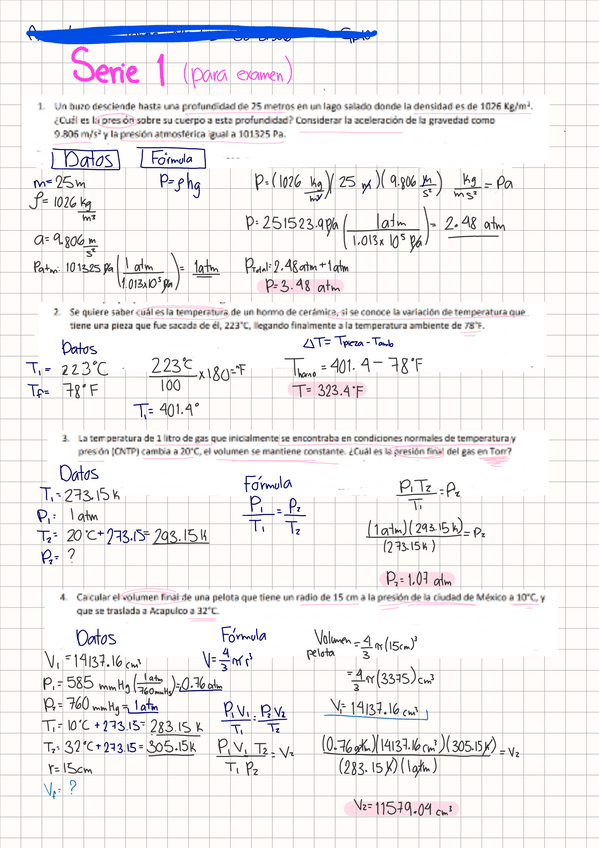 Serie 1 (para examen)
1. Un buzo desciende hasta una profundidad de 25 metros en un lago salado donde la densidad es de 1026 Kg/m³.
¿Cuál es la presión sobre su cuerpo a esta profundidad? Considerar la aceleración de la gravedad como
9.806 m/s² y la presión atmosférica igual a 101325 Pa.
Datos
m=25m
ρ=1026 kg/m³
a=9.806 m/s²
Patm: 101325 Pa (1 atm / 1.013x10⁵ Pa) = 1atm
Fórmula
P=ρhg
P=(1026 kg/m³)(25 m)(9.806 m/s²) kg/ms² = Pa
P=251523.9Pa (1atm / 1.013x10⁵ Pa) = 2.48 atm
PTotal=2.48atm+1atm
P=3.48 atm
2. Se quiere saber cuál es la temperatura de un horno de cerámica, si se conoce la variación de temperatura que
tiene una pieza que fue sacada de él, 223°C, llegando finalmente a la temperatura ambiente de 78°F.
Datos
T₁= 223°C
Tf= 78°F
223°C/100 x180=°F
T₁= 401.4°
ΔT= Tpieza - Tamb
Thorno=401.4-78°F
T=323.4°F
3. La temperatura de 1 litro de gas que inicialmente se encontraba en condiciones normales de temperatura y
presión (CNTP) cambia a 20°C, el volumen se mantiene constante. ¿Cuál es la presión final del gas en Torr?
Datos
T₁=273.15K
P₁= 1atm
T₂= 20°C+273.15=293.15K
P₂= ?
Fórmula
P₁/T₁ = P₂/T₂
P₁T₂/T₁ = P₂
(1atm)(293.15K)/(273.15K) = P₂
P₂=1.07 atm
4. Calcular el volumen final de una pelota que tiene un radio de 15 cm a la presión de la ciudad de México a 10°C, y
que se traslada a Acapulco a 32°C.
Datos
V₁=14137.16 cm³
P₁=585 mmHg (1atm/760mmHg)=0.76 atm
P₂=760mmHg=1atm
T₁=10°C+273.15=283.15 K
T₂=32°C+273.15=305.15K
r=15cm
Vf= ?
Fórmula
V=4/3 πr³
P₁V₁/T₁ = P₂V₂/T₂
P₁V₁T₂/T₁P₂ = V₂
Volumen pelota = 4/3 π(15cm)³
=4/3 π(3375)cm³
V₁=14137.16cm³
(0.76atm)(14137.16cm³)(305.15K)/(283.15K)(1atm) = V₂
V₂=11579.04 cm³